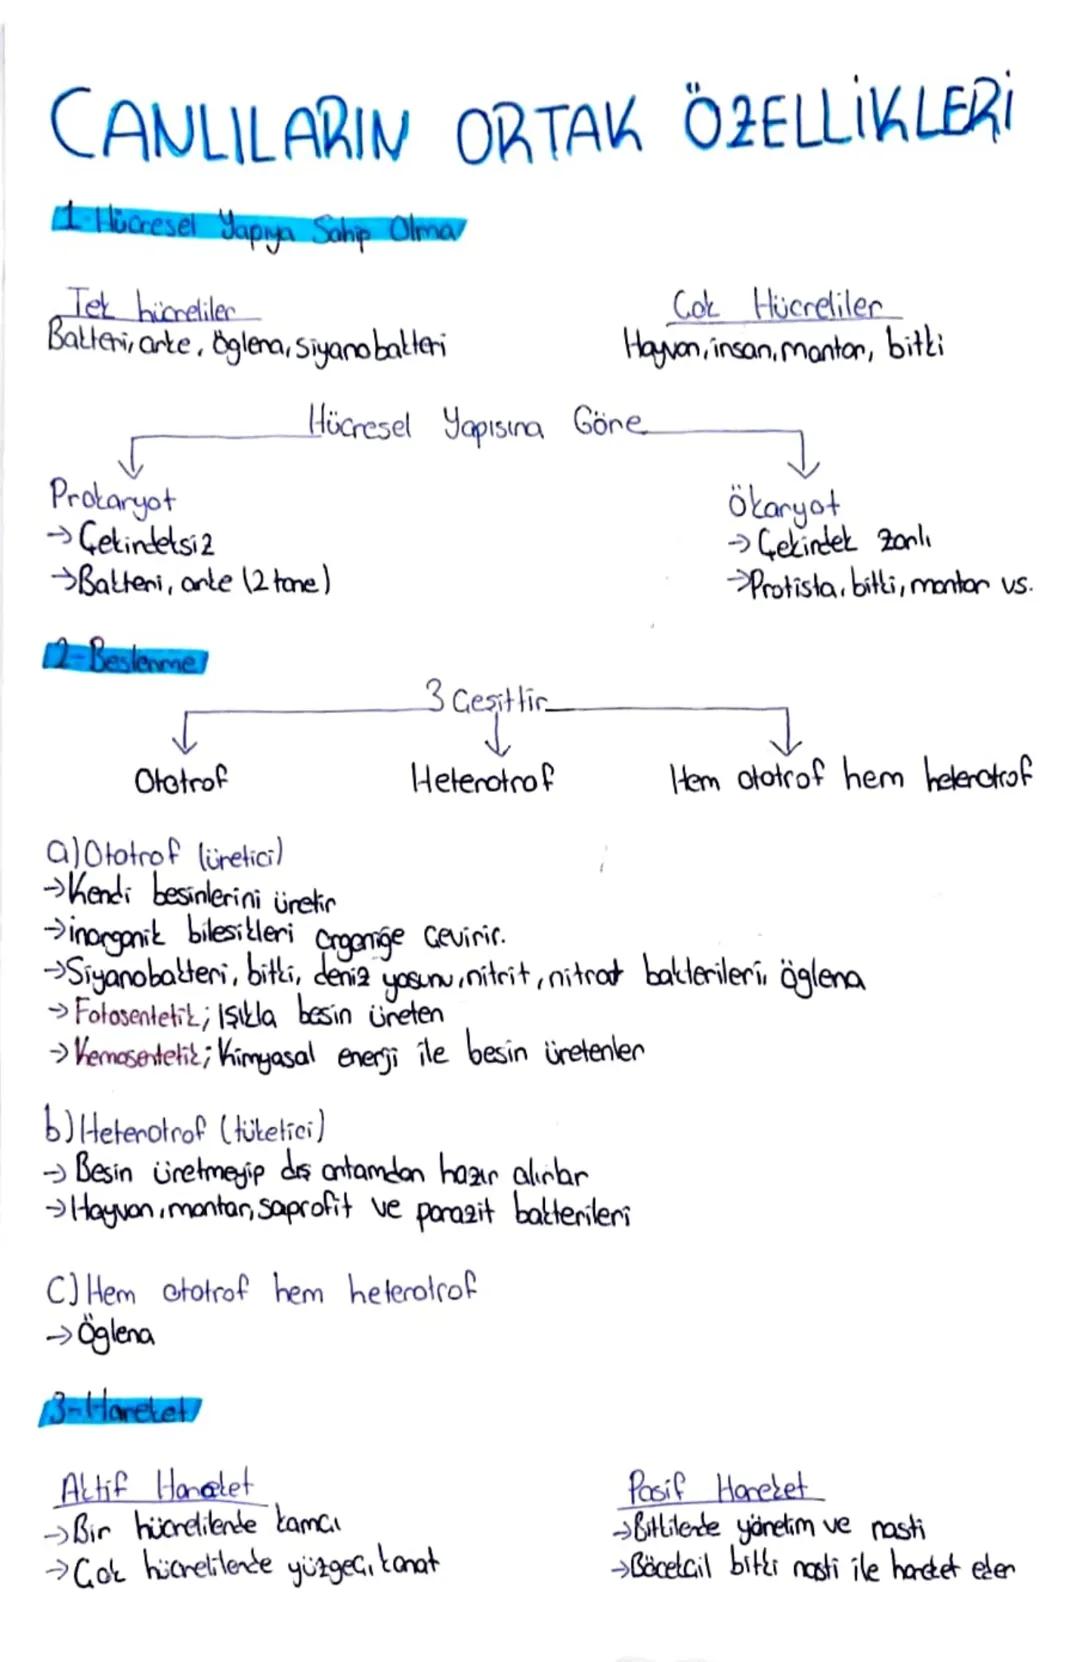 CANLILARIN ORTAK ÖZELLİKLERİ
1-Hücresel Yapıya Sahip Olma
Tek hücreliler
Bakteri, arke, öglena, siyanobakteri
Çok Hücreliler
Hayvan, insan, mantar, bitki
Hücresel Yapısına Göre
Prokaryot
→ Çekirdeksiz
→ Bakteri, arke (2 tane)
Ökaryot
→ Çekirdek zarlı
→ Protista, bitki, mantar vs.
2-Beslenme
3 Çeşittir
Ototrof
Heterotrof
Hem ototrof hem heterotrof
a) Ototrof (üretici)
→ Kendi besinlerini üretir
→ inorganik bileşikleri organiğe çevirir.
→ Siyanobakteri, bitki, deniz yosunu, nitrit, nitrat bakterileri, öglena
→ Fotosentetik; Işıkla besin üreten
→ Kemosentetik; Kimyasal enerji ile besin üretenler
b) Heterotrof (tüketici)
→ Besin üretmeyip dış ortamdan hazır alırlar
→ Hayvan, mantar, saprofit ve parazit bakterileri
C) Hem ototrof hem heterotrof
→ Öglena
3-Hareket
Aktif Hareket
→ Bir hücrelilerde kamçı
→ Çok hücrelilerde yüzgeç, kanat
Pasif Hareket
→ Bitkilerde yönelim ve nasti
→ Böcekçil bitki nasti ile hareket eder